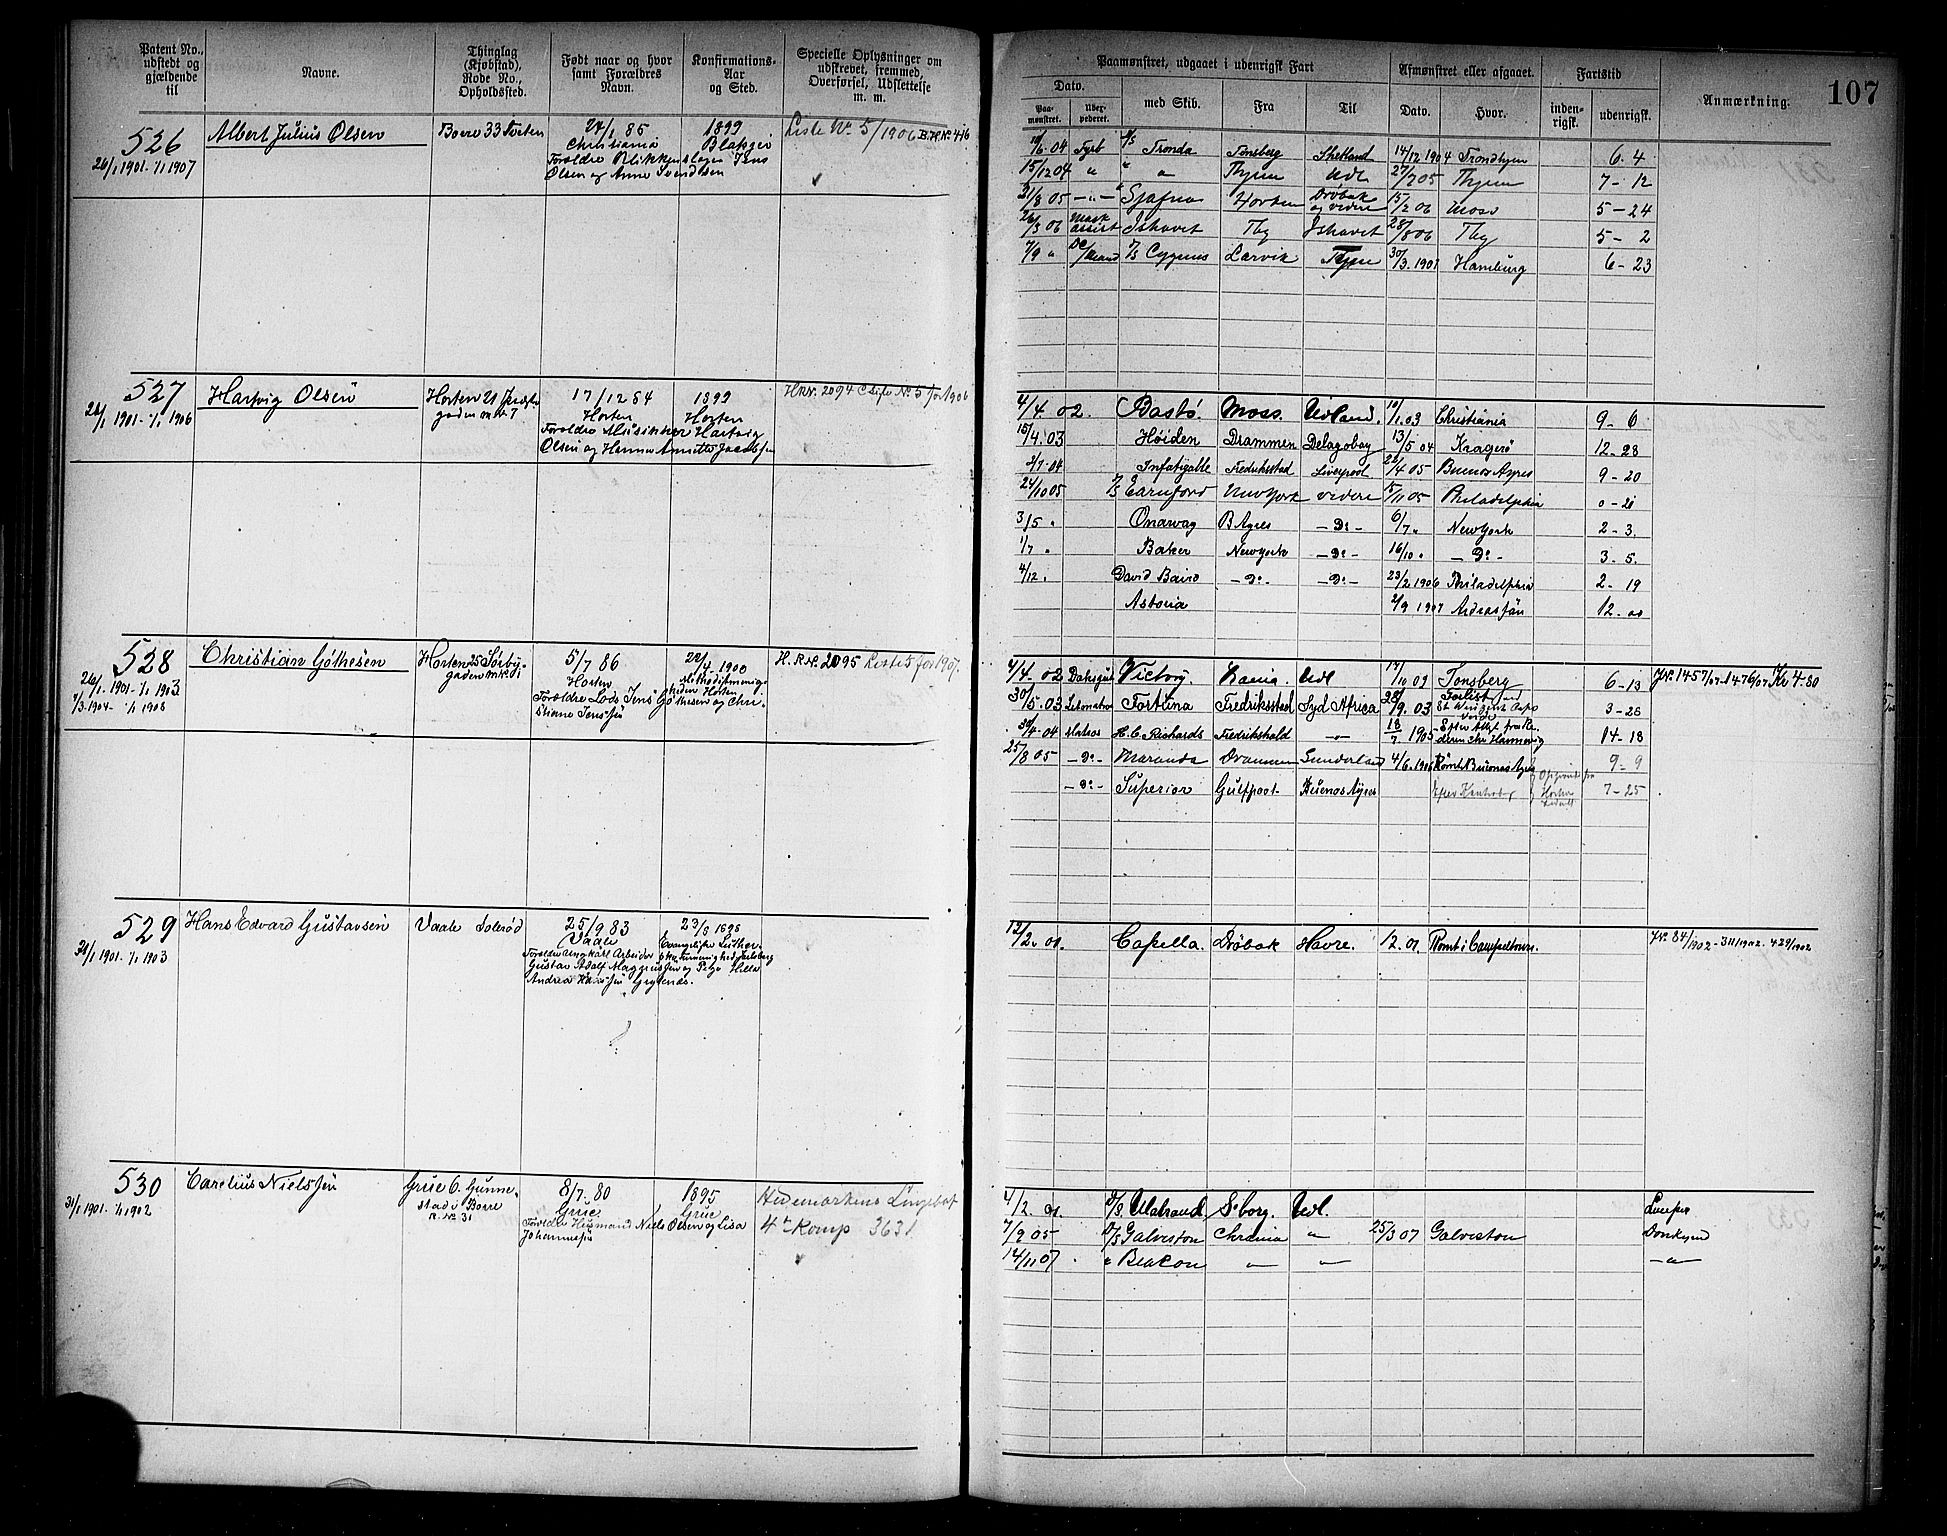 Patent No.,
udstedt og
gjældende
til
Navne.
Thinglag
(Kjøbstad),
Rode No.,
Opholdssted.
Født naar og hvor
samt Forældres
Navn.
Konfirmations-
Aar
og Sted.
Specielle Oplysninger om
udskrevet, fremmed,
Overførsel, Udslettelse
m. m.
526
26/1 1901 - 1/1 1907
Albert Julius Olsen
Borre 33
24/1 85
Christiania
Forældre Blikkenslager Jens
Olsen og Anne Svendsen
1899
Liste No 5/1906
527
1901 - 1/1 1906
Hartvig Olsen
Horten 21
gaden
17/12 84
Horten
Forældre Musikker Hartvig
Olsen og Hanna Annette Jacobsen
1899
Horten
H.R. No. 2094 Liste No. 5 for 1906
528
26/1 1901 - 1/1 1903
7/3 1904 - 1/1 1908
Christian Gøthesen
Horten 25 Sørby-
gaden
5/7 86
Horten
Forældre Lods Jens Gøthesen og Chri-
stiane Jensen
22/4 1900
Methodistmenig-
heden Horten
H. R. No. 2095 Liste 5 for 1907.
529
31/1 1901 - 1/1 1903
Hans Edvard Gustavsen
Vaale Solerød
25/9 83
Vaale
Forældre Ungkarl Arbeider
Gustav Adolf Magnussen og Pige Helle
Andrea Hansen
23/ 1898
Evangelisk Luther.
Frimenighed Jarlsberg
530
31/1 1901 - 1/1 1902
Carelius Nielsen
Grue 6. Gunne-
stad i Borre
R. No. 31
8/7 80
Grue
Forældre Husmand Niels Olsen og Lisa
Johannesen
1895
Grue
Hedemarkens Lingebat
4de Komp 3631
107
Paamønstret, udgaaet i udenrigsk Fart
Afmønstret eller afgaaet.
Fartstid
Anmærkning.
Dato.
Paa-
mønstret.
med Skib.
Fra
Til
Dato.
Hvor.
inden-
rigsk.
udenrigsk.
04 Fyrb Tronda Tønsberg Shetland 14/12 1904 Trondhjem 6 4
15/12 04 " " Thjem Udl 27/7 05 Thjem 7 - 12
31/8 05 - " - Sjafna Horten Drøbak og videre 15/2 06 Moss 5 - 24
26/3 06 Mask assist Ishavet Thj Ishavet 28/8 06 Thj 5 - 2
7/9 " S/S Cygnus Larvik Tyne 30/3 1907 Hamburg 6 - 23
4/4 02. Bastø Moss. Udland. 10/1 03 Christiania 9 - 6
15/4 03 Høiden Drammen Delagobay 13/5 04 Kragerø 12 - 28
2/7 04 Infatigable Fredrikstad Liverpool 22/4 05 Buenos Ayres 9 - 20
24/10 05 New York videre 15/11 05 Philadelphia 0 - 21
3/5 " Onawag B. Ayres - Do - 6/7 " New York 2 - 3.
1/7 " Baker New york - Do - 16/10 " - Do - 3 - 5.
4/12 " David Baird - Do - - Do - 23/2 1906 Philadelphia 2 - 19
Astoria 2/9 1907 12 - 00
4/4 02 Victory. Udl 17/10 02 Tønsberg 6 - 13
JNo. 1457/07 - 1476/07 Kr 4-80
30/5 03 Letmatros Fortuna Fredriksstad Syd Africa 28/9 03 Forlist 3 - 28
30/4 04 Matros H. C. Richards Fredrikshald - " - 18/7 1905 14 - 18
25/8 05 - Do - Maranda Drammen Sunderland 4/6 1906 Rømt Buenos Ayres 9 - 9
- Do - Superior Gulfport Buenos Ayres 7 - 25
12/2 01. Capella. Drøbak Havre. 12. 01. Rømt i Campeltown.
JNo. 84/1902 - 311/1902. 429/1902
4/2 01. S/S Ulstrand S.borg. Udl. Lemper
7/9 05 D/S Galveston Chrania " 25/3 07 Galveston Donkym
14/11 07 " Beacon - " - - " - - " -